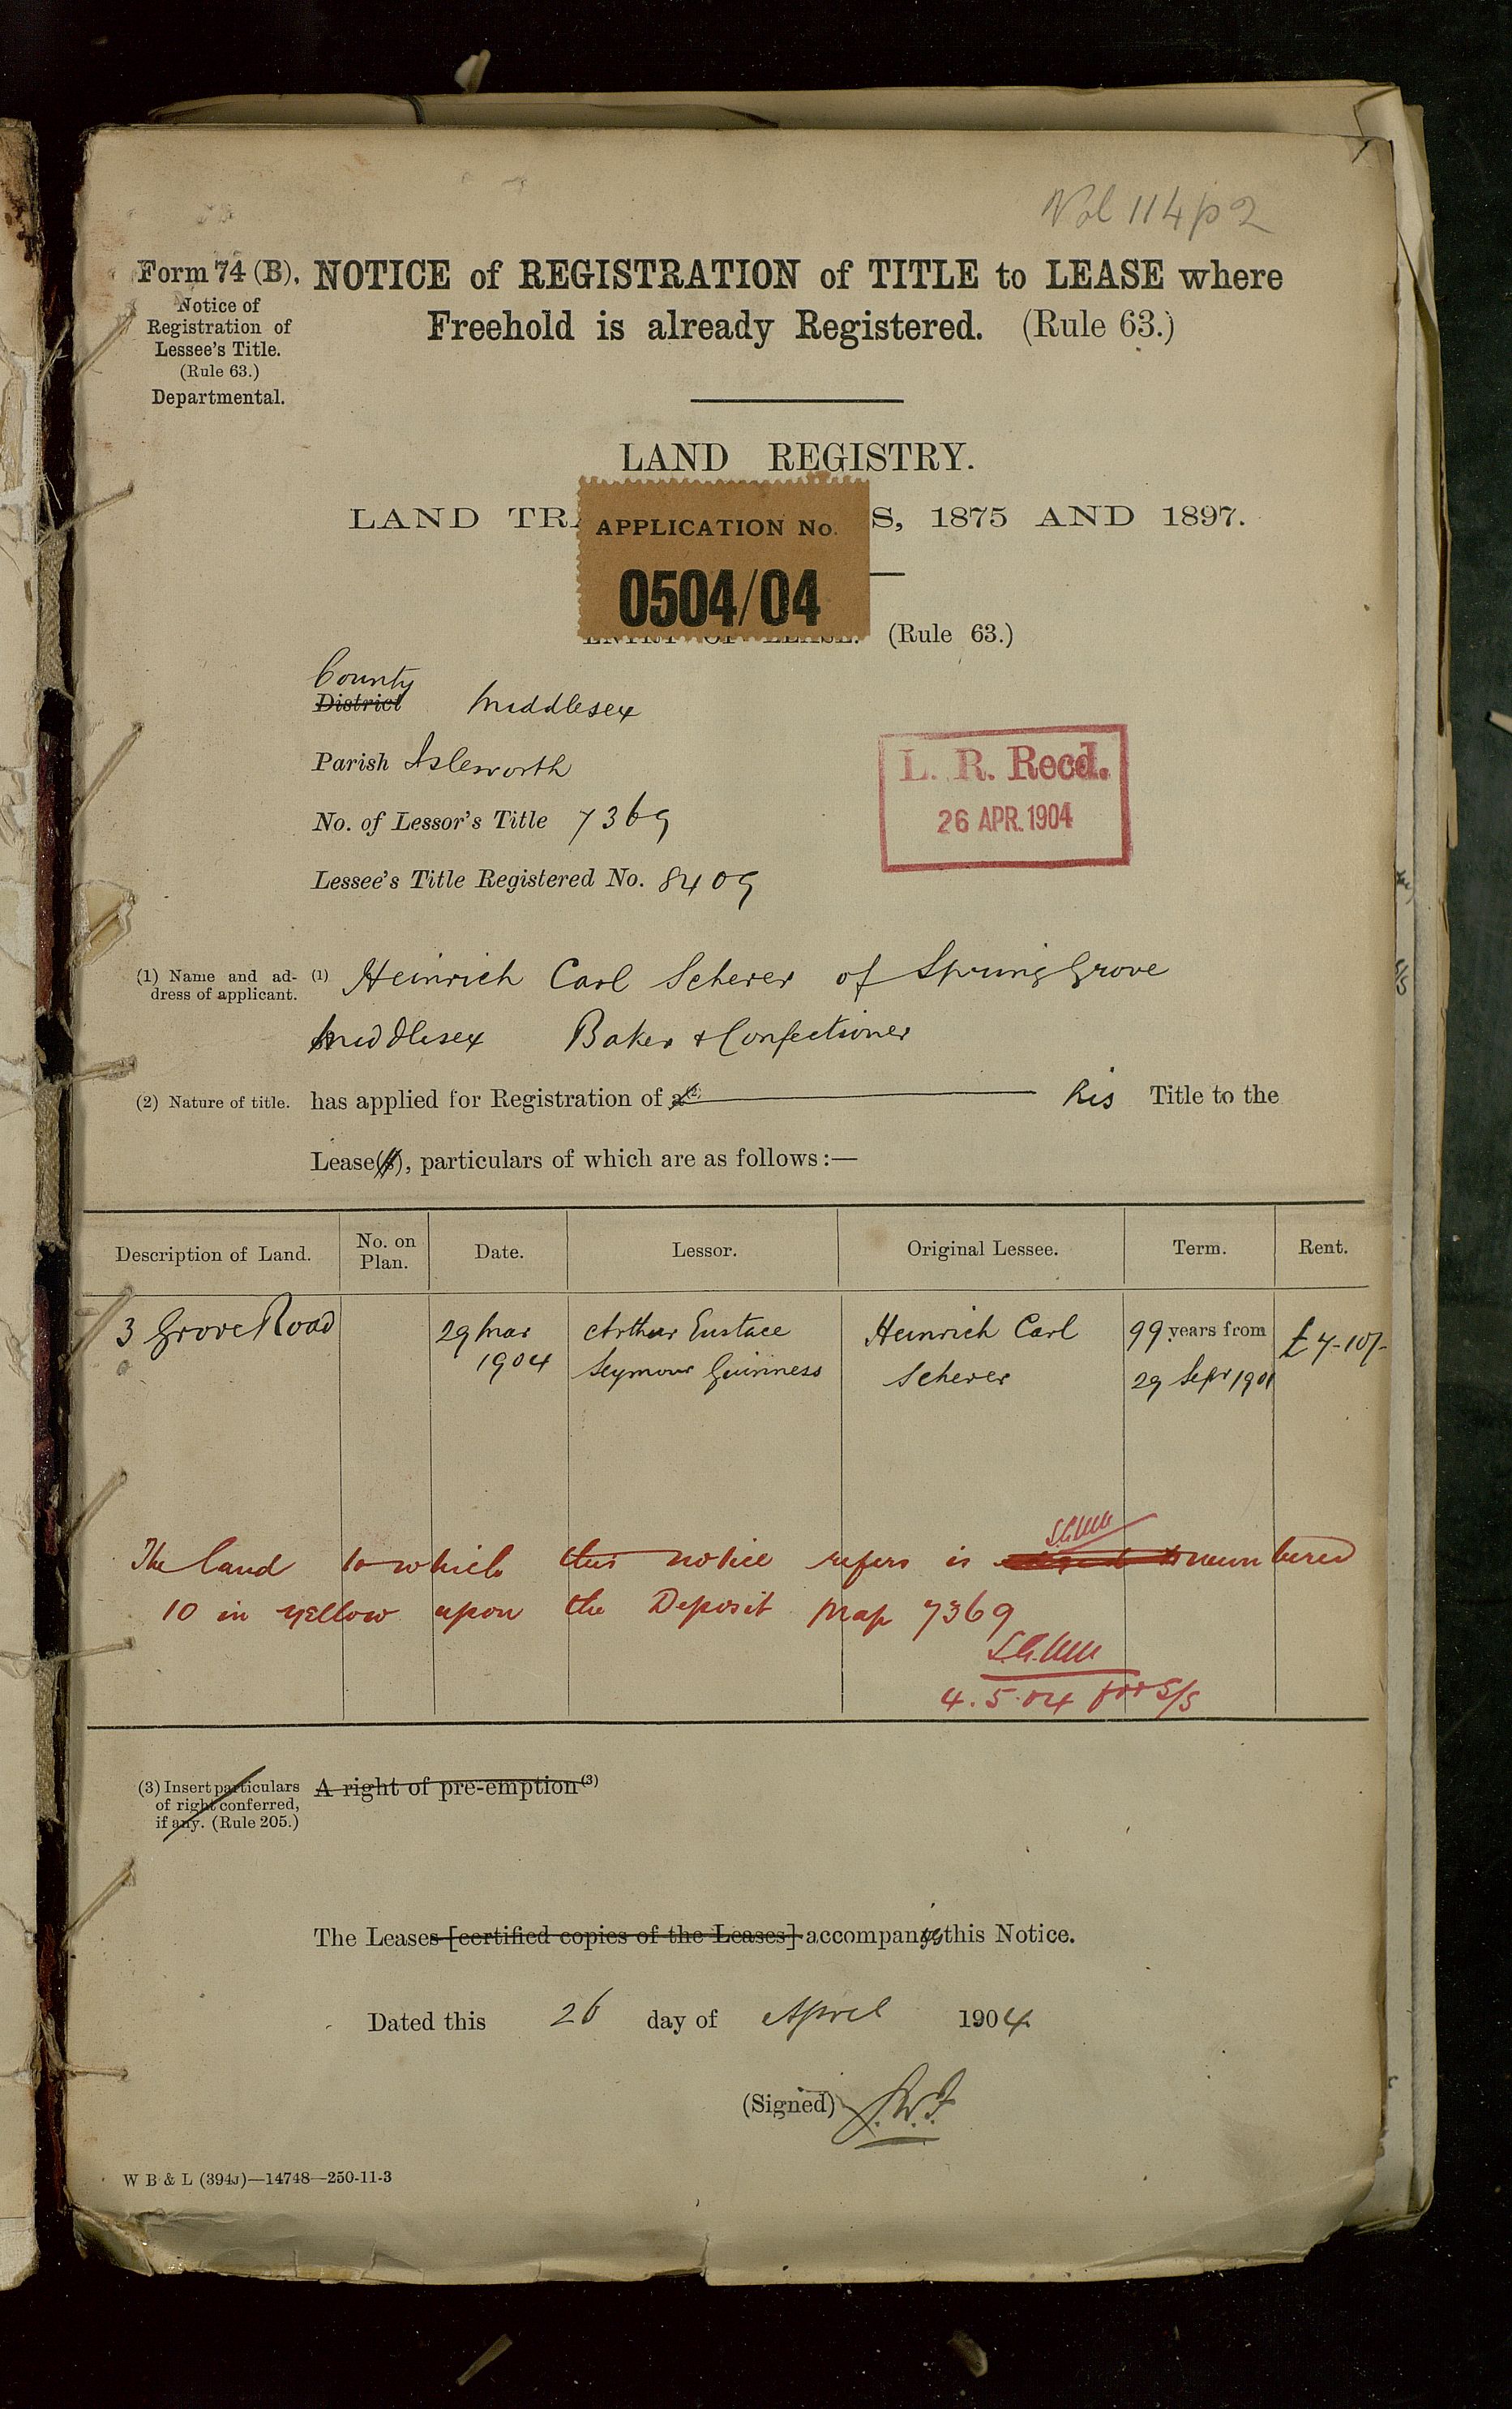 Vol 114 p 2
Form 74 (B). NOTICE of REGISTRATION of TITLE to LEASE where
Freehold is already Registered. (Rule 63.)
Notice of
Registration of
Lessee's Title.
(Rule 63.)
Departmental.
LAND REGISTRY.
LAND TRA S, 1875 AND 1897.
APPLICATION No.
0504/04
ENTRY OF LEASE. (Rule 63.)
County
District Middlesex
Parish Isleworth
No. of Lessor's Title 7369
Lessee's Title Registered No. 8409
L. R. Recd.
26 APR. 1904
(1) Name and ad-
dress of applicant.
(1) Heinrich Carl Scherer of Spring Grove
Middlesex Baker & Confectioner
(2) Nature of title. has applied for Registration of a (2) his Title to the
Lease(s), particulars of which are as follows:—
Description of Land. No. on Plan. Date. Lessor. Original Lessee. Term. Rent.
3 Grove Road 29 Mar Arthur Eustace Heinrich Carl 99 years from £7-10/-
1904 Seymour Guinness Scherer 29 Sepr 1901
The land to which this notice refers is numbered
10 in yellow upon the Deposit Map 7369
4.5.04
(3) Insert particulars
of right conferred,
if any. (Rule 205.)
A right of pre-emption (3)
The Leases [certified copies of the Leases] accompanies this Notice.
Dated this 26 day of April 1904
(Signed)
W B & L (394J)—14748—250-11-3